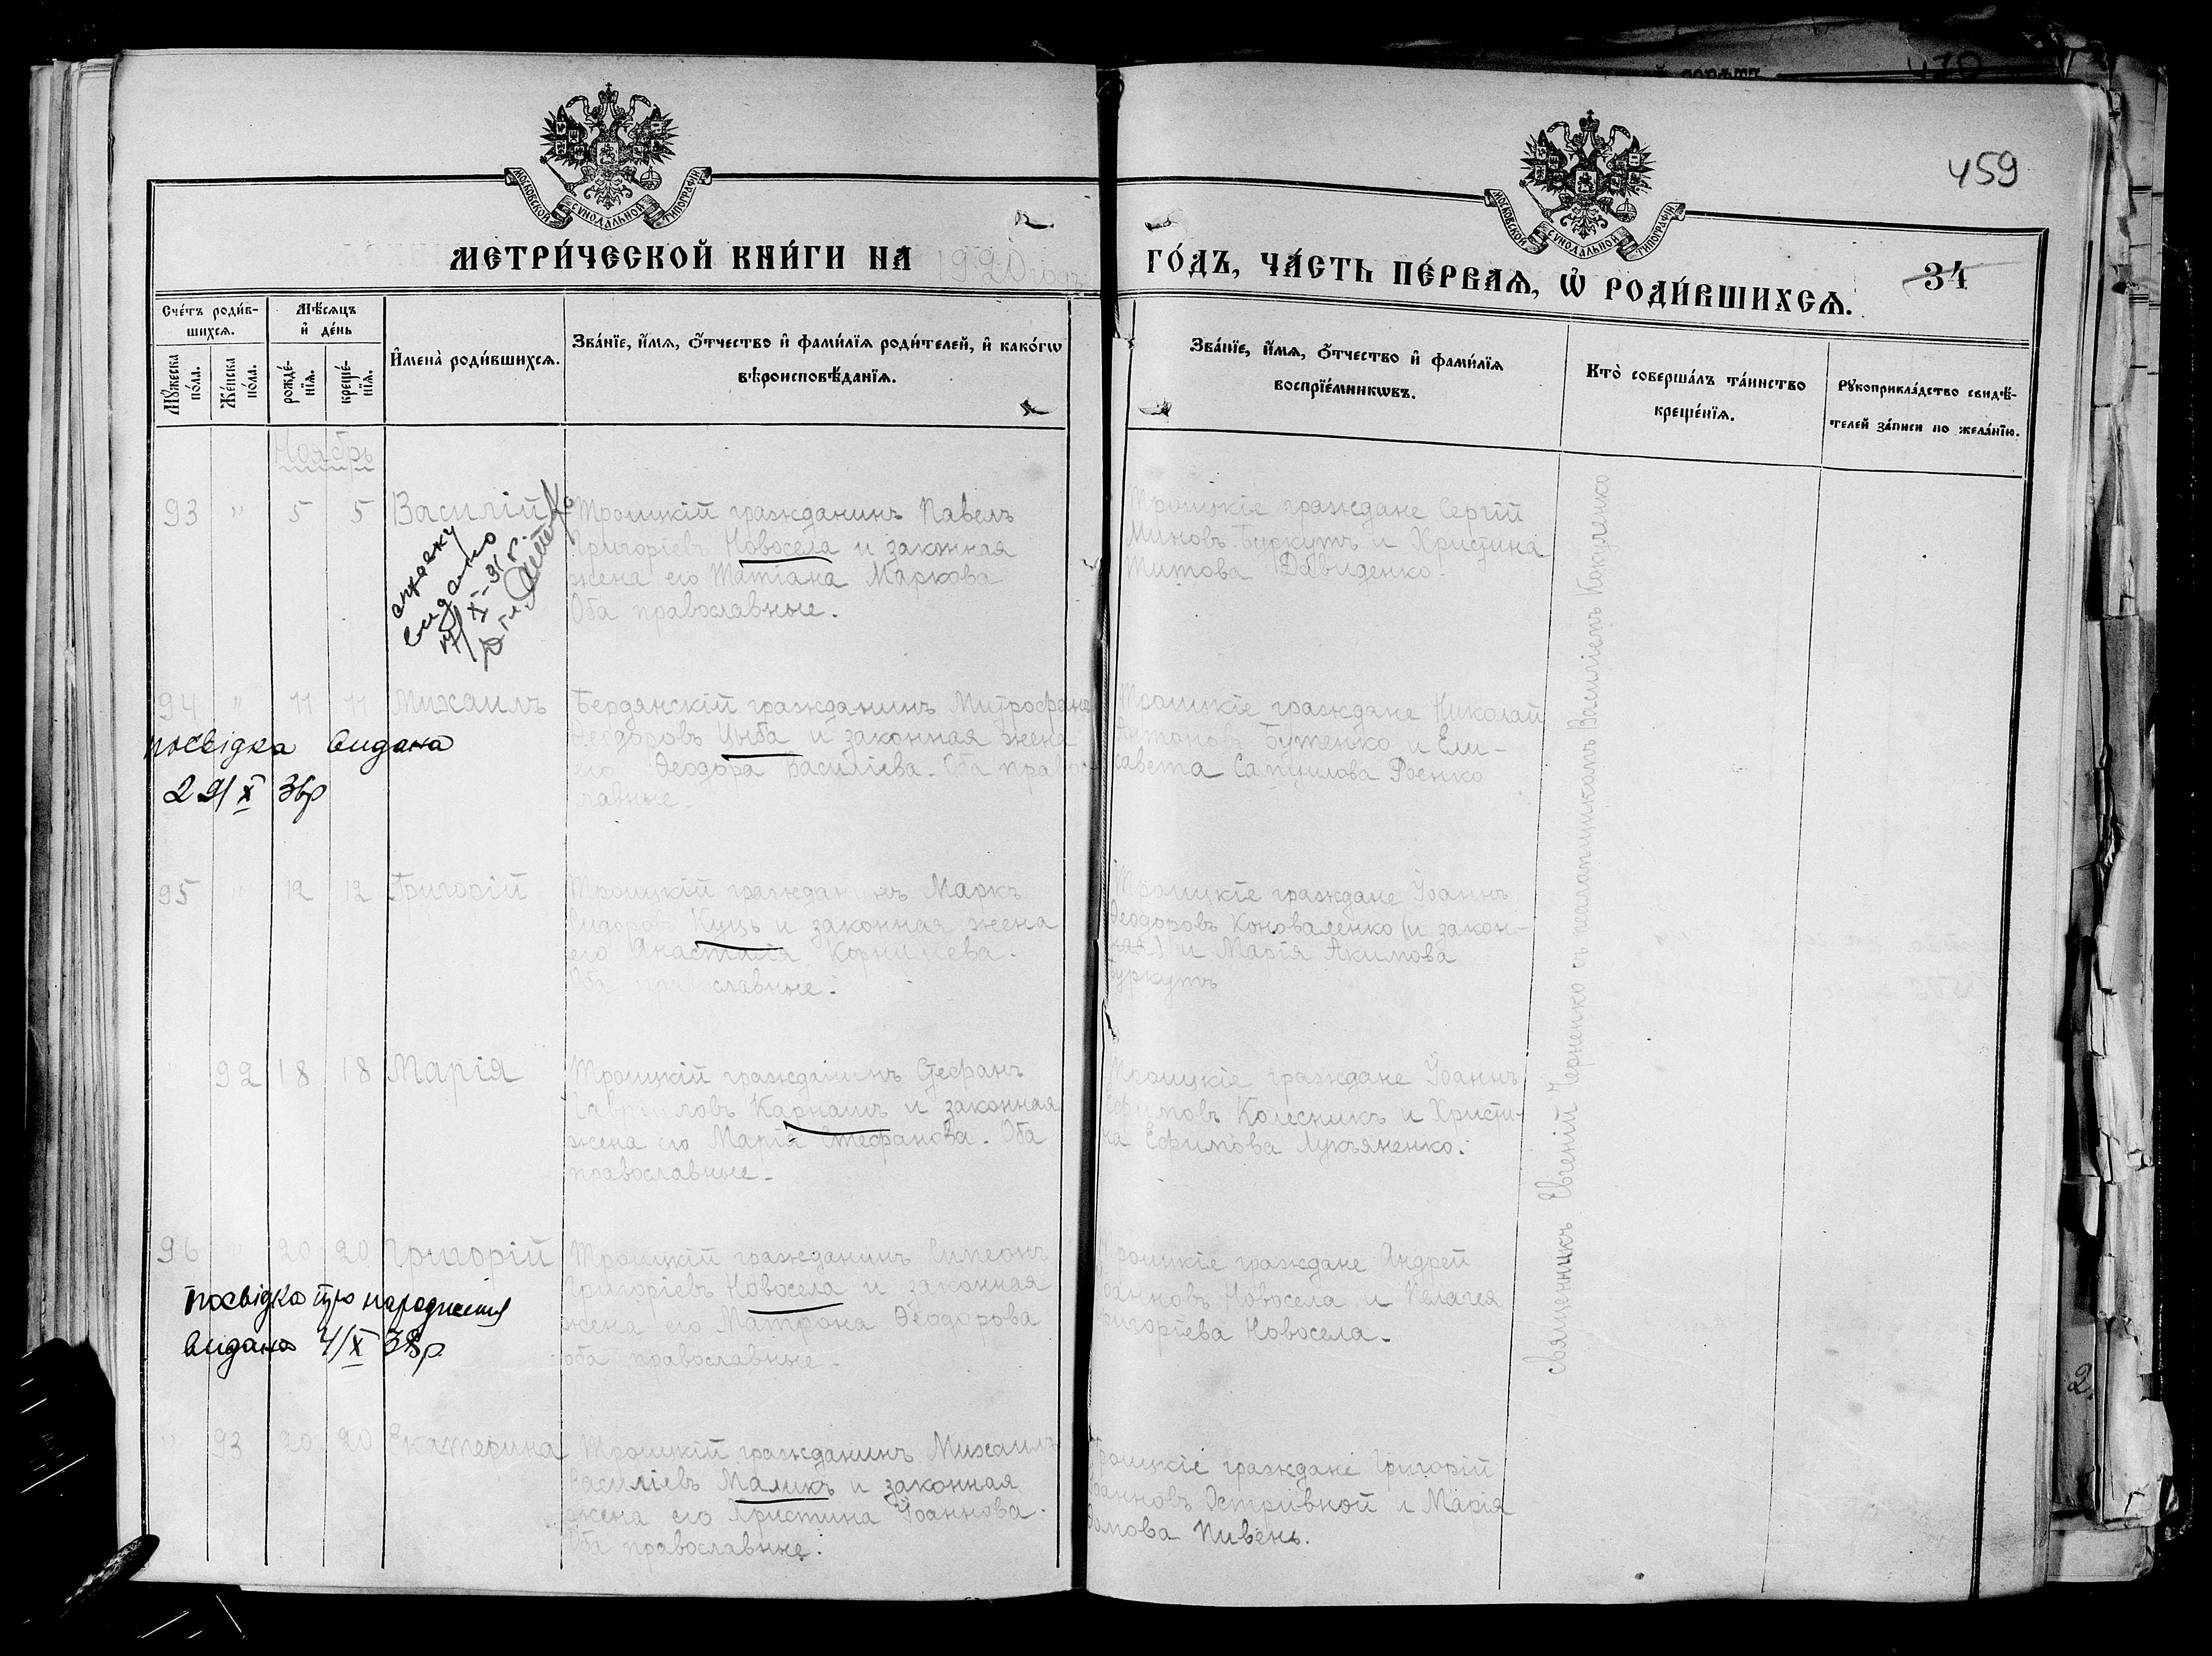 470
459
МОСКОВСКОЙ СУНОДАЛЬНОЙ ТИПОГРАФІИ
МОСКОВСКОЙ СУНОДАЛЬНОЙ ТИПОГРАФІИ
МЕТРИ́ЧЕСКОЙ КНИ́ГИ НА 1920 годъ
ГО́ДЪ, ЧА́СТЬ ПЕ́РВАѦ, Ѡ҆ РОДИ́ВШИХСѦ.
34
Сче́тъ роди́в-
шихсѧ.
Мѣ́сѧцъ
и҆ де́нь
Мꙋ́жеска по́ла.
Же́нска по́ла.
рожде́-
нїѧ.
креще́-
нїѧ.
И҆мена̀ роди́вшихсѧ.
Зва́нїе, и҆́мѧ, ѻ҆́тчество и҆ фами́лїѧ роди́телей, и҆ како́гѡ
вѣроисповѣ́данїѧ.
Зва́нїе, и҆́мѧ, ѻ҆́тчество и҆ фами́лїѧ
воспрїе́мникѡвъ.
Кто̀ соверша́лъ та́инство
креще́нїѧ.
Рꙋкоприкла́дство свидѣ́-
телей за́писи по жела́нїю.
Ноябрь
93 " 5 5 Василій
Троицкій гражданинъ Павелъ
Григоріевъ Новосела и законная
жена его Татіана Маркова
Оба православные.
Троицкіе граждане Сергій
Миновъ Буркутъ и Христина
Титова Давиденко.
видано
94 " 11 11 Михаилъ
Бердянскій гражданинъ Митрофанъ
Ѳеодоровъ Цыба и законная жена
его Ѳеодора Василіева. Оба правос-
лавные.
Троицкіе граждане Николай
Антоновъ Бутенко и Ели-
савета Самуилова Роенко
посвідка видана
29/X 36р
95 " 12 12 Григорій
Троицкій гражданинъ Маркъ
Сидоровъ Куць и законная жена
его Анастасія Корниліева.
Оба православные.
Троицкіе граждане Іоаннъ
Ѳеодоровъ Коноваленко (и закон-
ная) и Марія Акимова
Буркутъ
" 92 18 18 Марія
Троицкій гражданинъ Стефанъ
Гавріиловъ Карнаухъ и законная
жена его Марія Стефанова. Оба
православные.
Троицкіе граждане Іоаннъ
Ефимовъ Колесникъ и Христи-
на Ефимова Лукъяненко.
96 " 20 20 Григорій
Троицкій гражданинъ Симеонъ
Григоріевъ Новосела и законная
жена его Матрона Ѳеодорова
оба православные.
Троицкіе граждане Андрей
Іоанновъ Новосела и Пелагея
Григоріева Новосела.
посвідка про народження
видана 4/X 38р
" 93 20 20 Екатерина
Троицкій гражданинъ Михаилъ
Василіевъ Маликъ и законная
жена его Христина Іоаннова.
Оба православные.
Троицкіе граждане Григорій
Іоанновъ Остривной и Марія
Пивень.
священникъ Евгеній Черненко съ псаломщикомъ Василіемъ Кокуленко